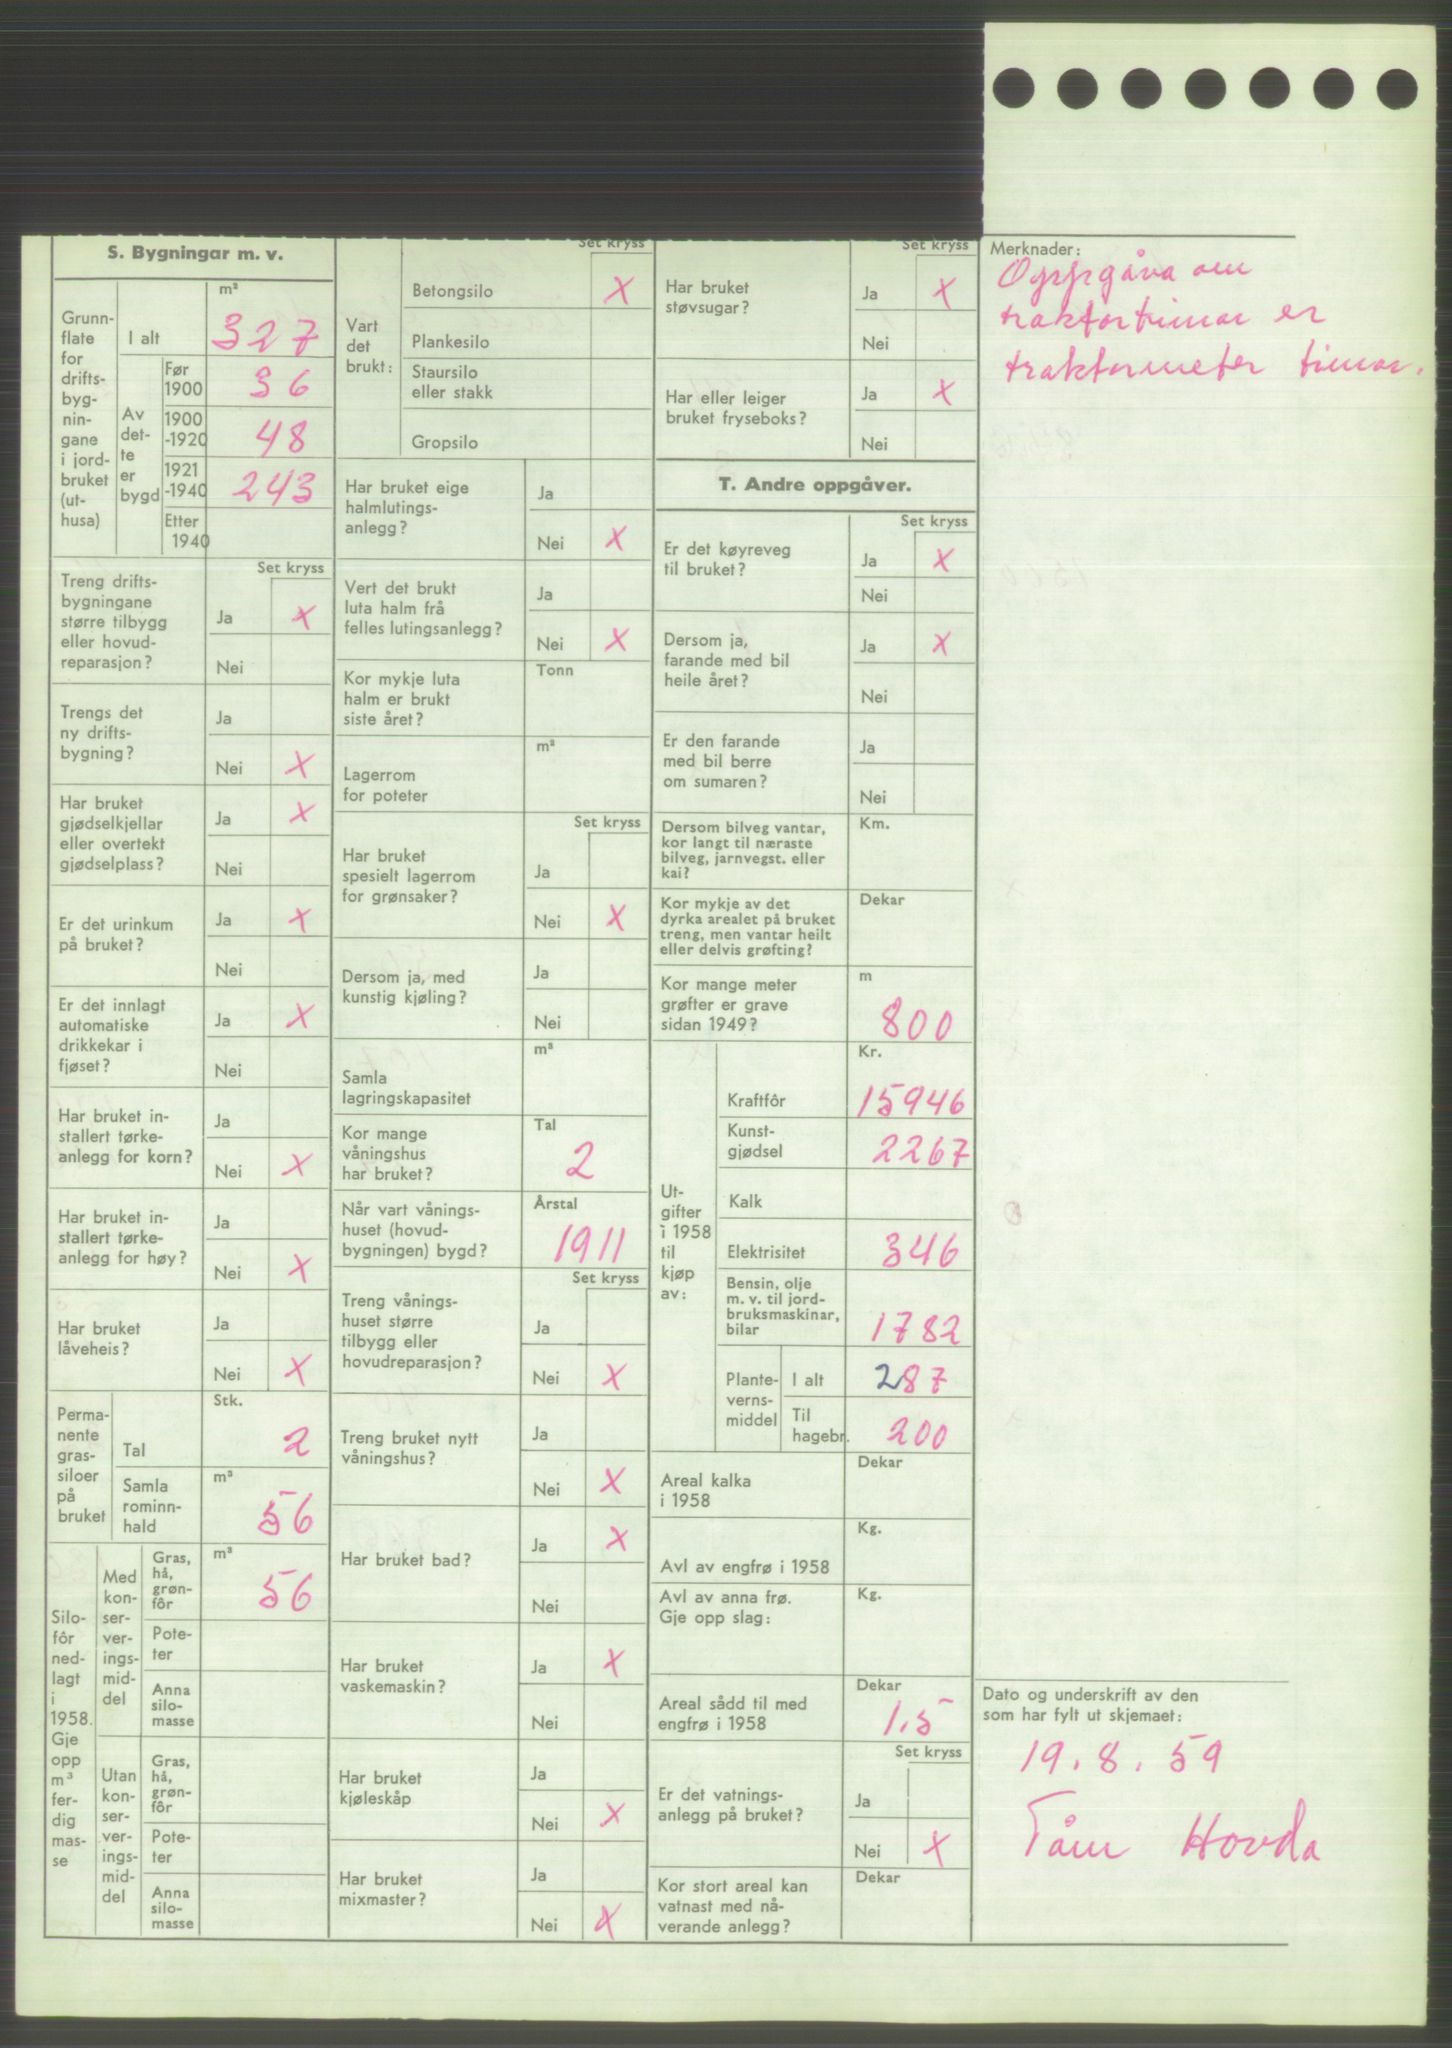 S. Bygningar m. v.
Grunn-
flate
for
drifts-
byg-
nin-
gane
i jord-
bruket
(ut-
husa)
m²
I alt 327
Av
det-
te
er
bygd
Før
1900 36
1900
-1920 48
1921
-1940 243
Etter
1940
Set kryss
Treng drifts-
bygningane
større tilbygg
eller hovud-
reparasjon?
Ja X
Nei
Trengs det
ny drifts-
bygning?
Ja
Nei X
Har bruket
gjødselkjellar
eller overtekt
gjødselplass?
Ja X
Nei
Er det urinkum
på bruket?
Ja X
Nei
Er det innlagt
automatiske
drikkekar i
fjøset?
Ja X
Nei
Har bruket in-
stallert tørke-
anlegg for korn?
Ja
Nei X
Har bruket in-
stallert tørke-
anlegg for høy?
Ja
Nei X
Har bruket
låveheis?
Ja
Nei X
Perma-
nente
gras-
siloer
på
bruket
Stk.
Tal 2
m³
Samla
rominn-
hald
56
Silo-
fôr
ned-
lagt
i
1958.
Gje
opp
m³
fer-
dig
mas-
se
Med
kon-
ser-
ver-
ings-
mid-
del
Gras,
hå,
grøn-
fôr
m³
56
Pote-
ter
Anna
silo-
masse
Utan
kon-
ser-
ver-
ings-
mid-
del
Gras,
hå,
grøn-
fôr
Pote-
ter
Anna
silo-
masse
Vart
det
brukt:
Set kryss
Betongsilo X
Plankesilo
Staursilo
eller stakk
Gropsilo
Har bruket eige
halmlutings-
anlegg?
Ja
Nei X
Vert det brukt
luta halm frå
felles lutingsanlegg?
Ja
Nei X
Kor mykje luta
halm er brukt
siste året?
Tonn
Lagerrom
for poteter
m²
Set kryss
Har bruket
spesielt lagerrom
for grønsaker?
Ja
Nei X
Dersom ja, med
kunstig kjøling?
Ja
Nei
Samla
lagringskapasitet
m³
Kor mange
våningshus
har bruket?
Tal
2
Når vart vånings-
huset (hovud-
bygningen) bygd?
Årstal
1911
Set kryss
Treng vånings-
huset større
tilbygg eller
hovudreparasjon?
Ja
Nei X
Treng bruket nytt
våningshus?
Ja
Nei X
Har bruket bad?
Ja X
Nei
Har bruket
vaskemaskin?
Ja X
Nei
Har bruket
kjøleskåp
Ja
Nei X
Har bruket
mixmaster?
Ja
Nei X
Set kryss
Har bruket
støvsugar?
Ja X
Nei
Har eller leiger
bruket fryseboks?
Ja X
Nei
T. Andre oppgåver.
Set kryss
Er det køyreveg
til bruket?
Ja X
Nei
Dersom ja,
farande med bil
heile året?
Ja X
Nei
Er den farande
med bil berre
om sumaren?
Ja
Nei
Dersom bilveg vantar,
kor langt til næraste
bilveg, jarnvegst. eller
kai?
Km.
Kor mykje av det
dyrka arealet på bruket
treng, men vantar heilt
eller delvis grøfting?
Dekar
Kor mange meter
grøfter er grave
sidan 1949?
m
800
Ut-
gifter
i 1958
til
kjøp
av:
Kr.
Kraftfôr 15946
Kunst-
gjødsel 2267
Kalk
Elektrisitet 346
Bensin, olje
m. v. til jord-
bruksmaskinar,
bilar 1782
Plante-
verns-
middel
I alt 287
Til
hagebr. 200
Areal kalka
i 1958
Dekar
Avl av engfrø i 1958
Kg.
Avl av anna frø.
Gje opp slag:
Kg.
Areal sådd til med
engfrø i 1958
Dekar
1,5
Set kryss
Er det vatnings-
anlegg på bruket?
Ja
Nei X
Kor stort areal kan
vatnast med nå-
verande anlegg?
Dekar
Merknader:
Oppgåva om
traktortimar er
traktormeter timar.
Dato og underskrift av den
som har fylt ut skjemaet:
19.8.59
Tåm Hovda